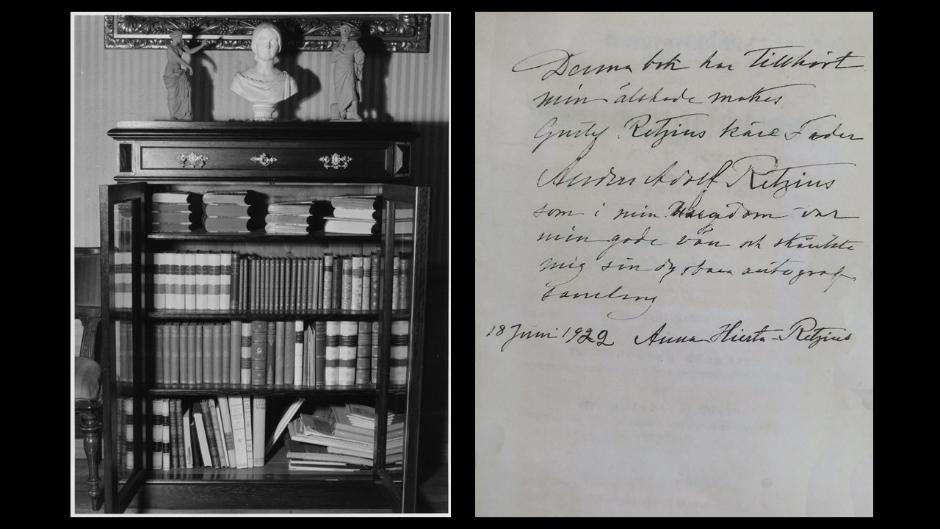 Denna bok har tillhört
min älskade makes
Gustaf Retzius käre Fader
Anders Adolf Retzius
som i min ungdom var
min gode vän och skänkte
mig sin dyrbara autograf
samling
18 Juni 1922 Anna Hierta-Retzius